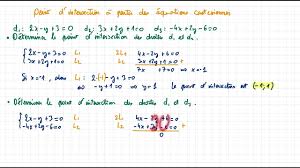 Point d'intersection à partir des équations cartésiennes
d₁: 2x-y+3=0 d₂: 3x+2y+1=0 d₃: -4x+2y-6=0
• Déterminer le point d'intersection des droites d₁ et d₂.
{ 2x-y+3=0 L₁
3x+2y+1=0 L₂
2L₁ 4x-2y+6=0
L₂ 3x+2y+1=0 +
7x +7=0 ⇔ x=-1
Si x=-1, dans L₁ 2·(-1)-y+3=0
⇔ -y+1=0 ⇔ y=1 le point d'intersection est (-1,1)
• Déterminer le point d'intersection des droites d₁ et d₃.
{ 2x-y+3=0 L₁
-4x+2y-6=0 L₂
2L₁ 4x-2y+6=0
L₂ -4x+2y-6=0 +
0